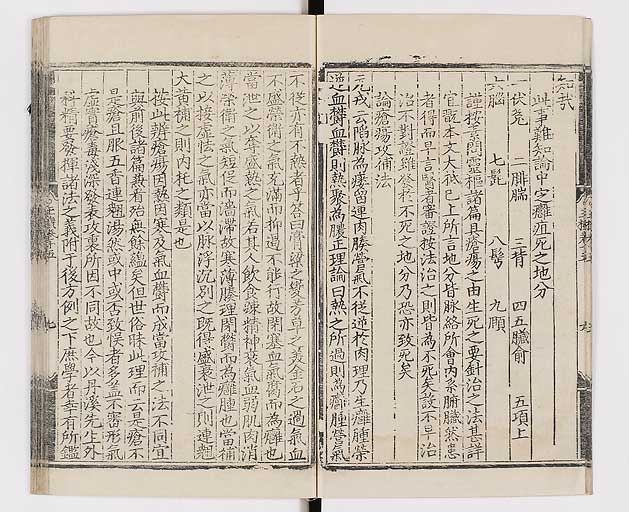 知哉
此事難知論中定癰疽死之地分
一伏兔 二腓腨 三背 四五臟俞 五項上
六腦 七髭 八鬢 九頤
謹按素問靈樞諸篇具瘡瘍之由生死之要針治之法甚詳
宜觀本文大抵已上所言地分皆脉絡所會內系腑臟然患
者得而早言醫者審證按法治之則皆為不死矣設不早治
治不對證雖發於不死之地分乃恐亦致死矣
論瘡瘍攻補法
元戎云陷脉為瘻留連肉腠營氣不從逆於肉理乃生癰腫榮
逆血鬱血鬱則熱聚為膿正理論曰熱之所過則為癰腫營氣
不從亦有不熱者乎答曰膏粱之變芳草之美金石之過氣血
不盛榮衛之氣充滿而抑遏不能行故閉塞血氣鬱而為癰也
當泄之以奪盛熱之氣若其人飲食踈精神衰氣血弱肌肉消
薄榮衛之氣短促而濇滯故寒薄腠理閉鬱而為癰腫也當補
之以接虛怯之氣亦當以脉浮沉別之既得盛衰泄之則連翹
大黃補之則內托之類是也
按此辨瘡瘍因熱因寒及氣血鬱而成當攻補之法不同宜
與前後諸篇叅看殆與餘蘊矣但世俗昧此理而云是瘡不
是瘡且服五香連翹湯然或中或否致悞者多盖不審形氣
虛實瘡毒淺深發表攻裏所因不同故也今以丹溪先生外
科精要發揮諸法之義附于後方例之下庶學者幸有所鑑